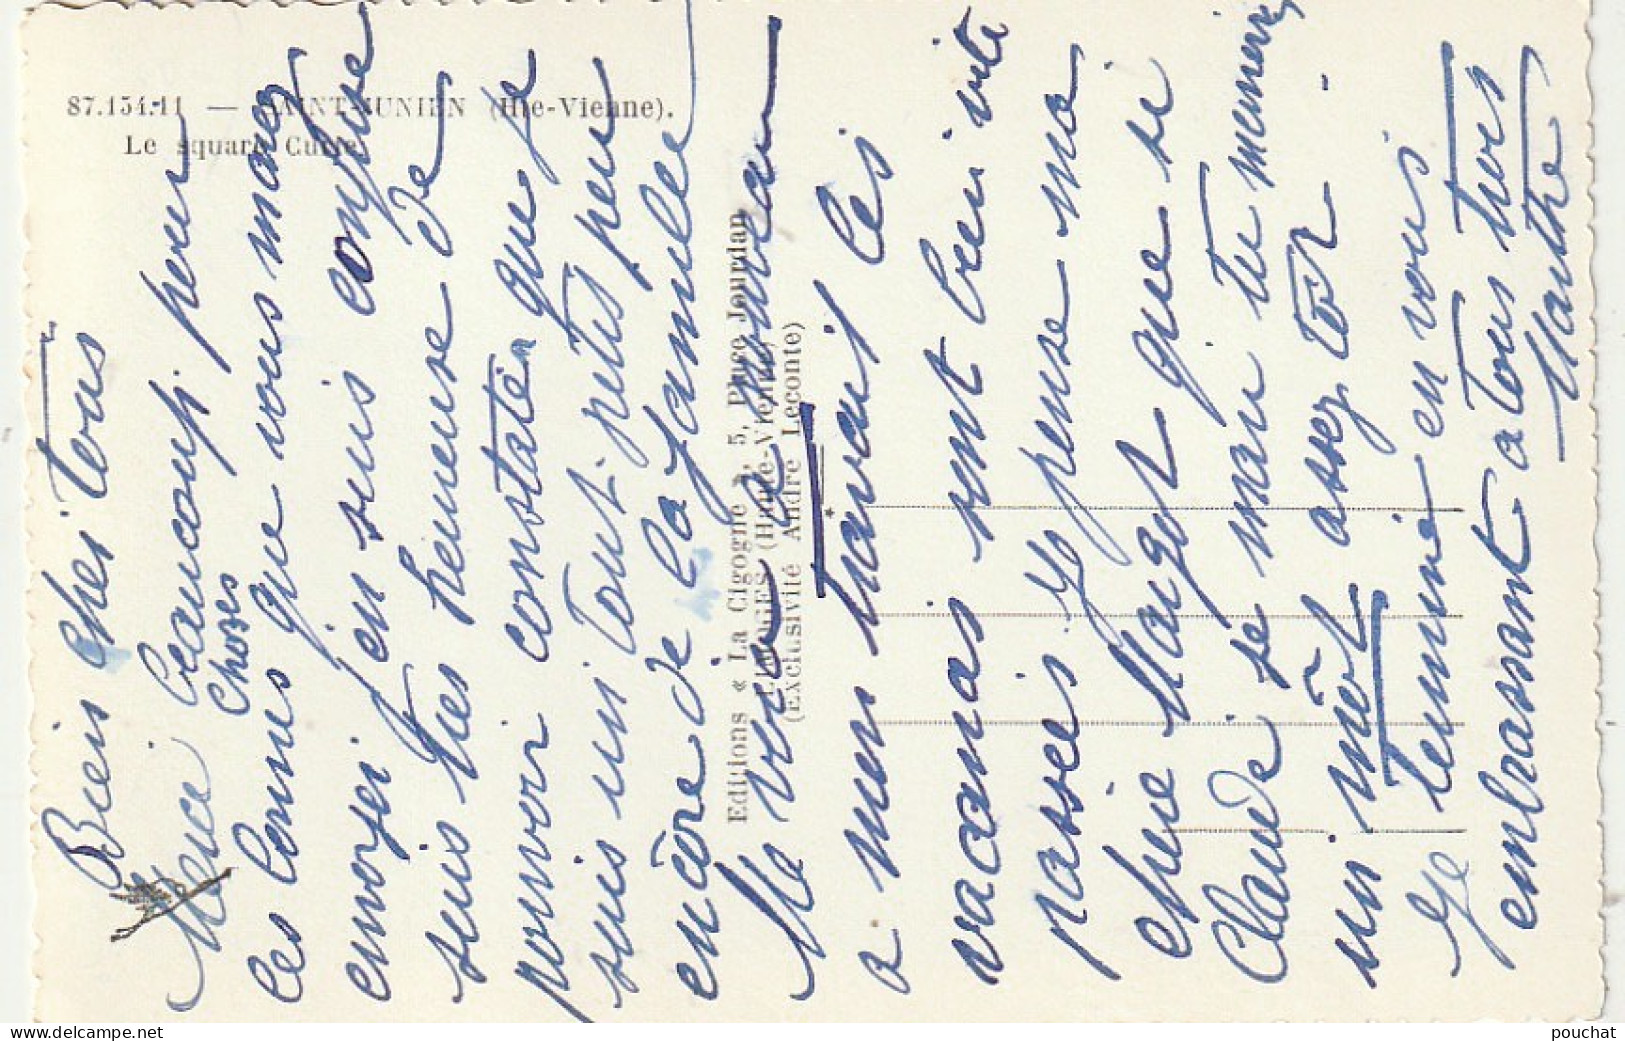 87.154.11 — SAINT-JUNIEN (Hte-Vienne).
Le square Curie.
Editions « La Cigogne », 5, Place Jourdan
LIMOGES (Haute-Vienne)
(Exclusivité André Leconte)
Bien cher tous
Merci beaucoup pour
choses
les bonnes que vous m'avez
envoyer j'en suis confuse
suis très heureuse de
pouvoir constater que je
suis un tout petit peu
encore de la famille
Me voici à nouveau
a mon travail les
vacances sont bien vite
passées je pense ma
chère Margot que si
Claude se marie tu
un mot assez tôt -
Je termine en vous
embrassant a tous très
Marthe
www.delcampe.net
pouchat